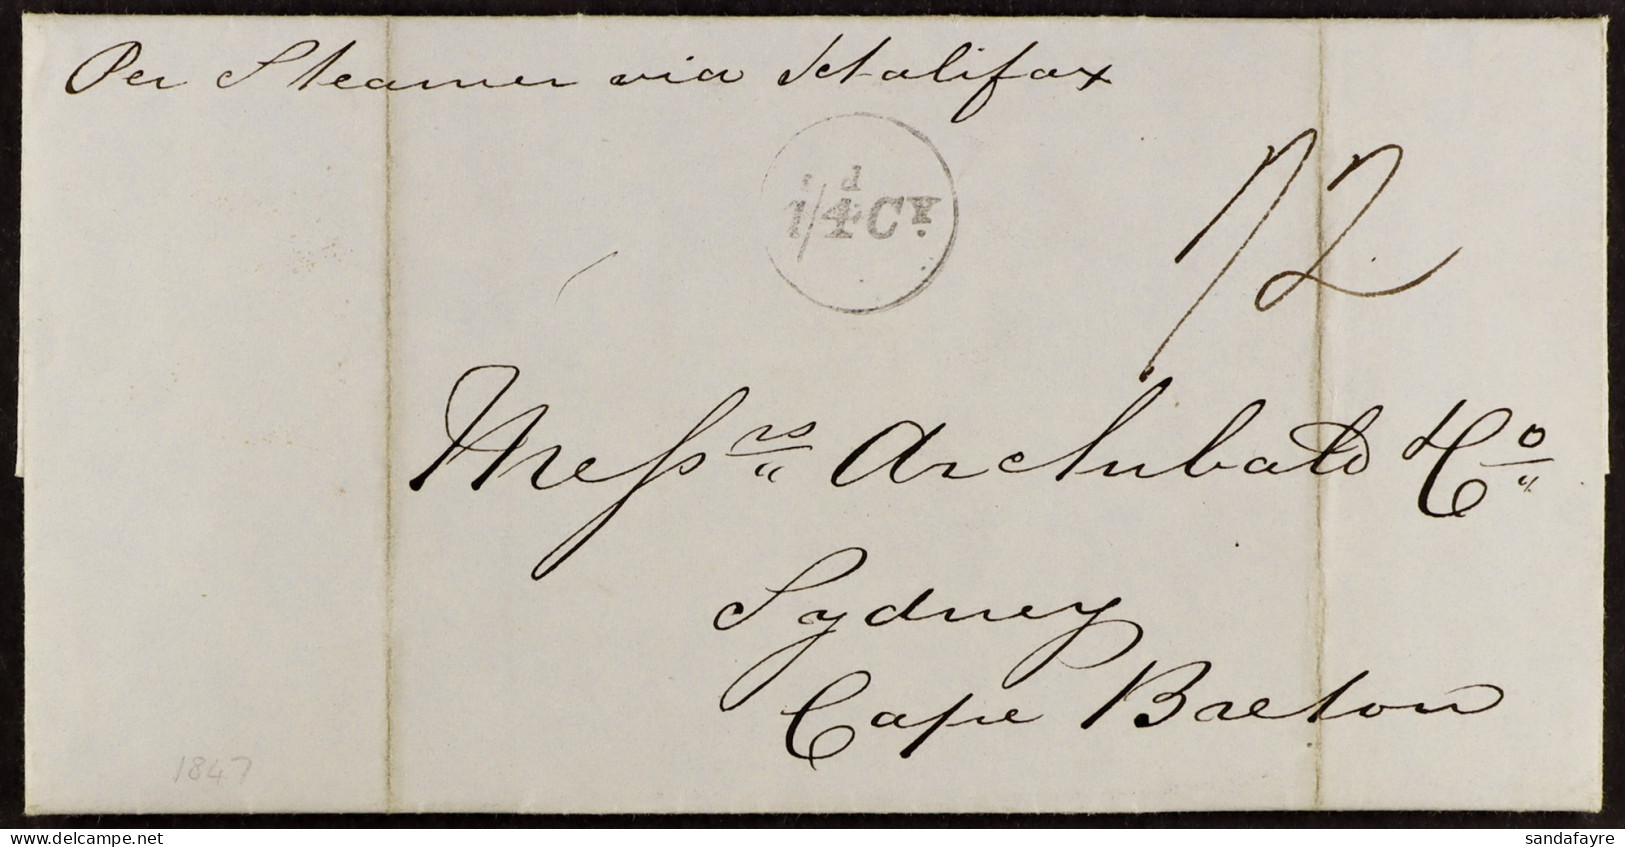 Per Steamer via Halifax
1/4d Cy.
1/2
Messrs Archibald & Co
Sydney
Cape Breton
1847
sandafayre